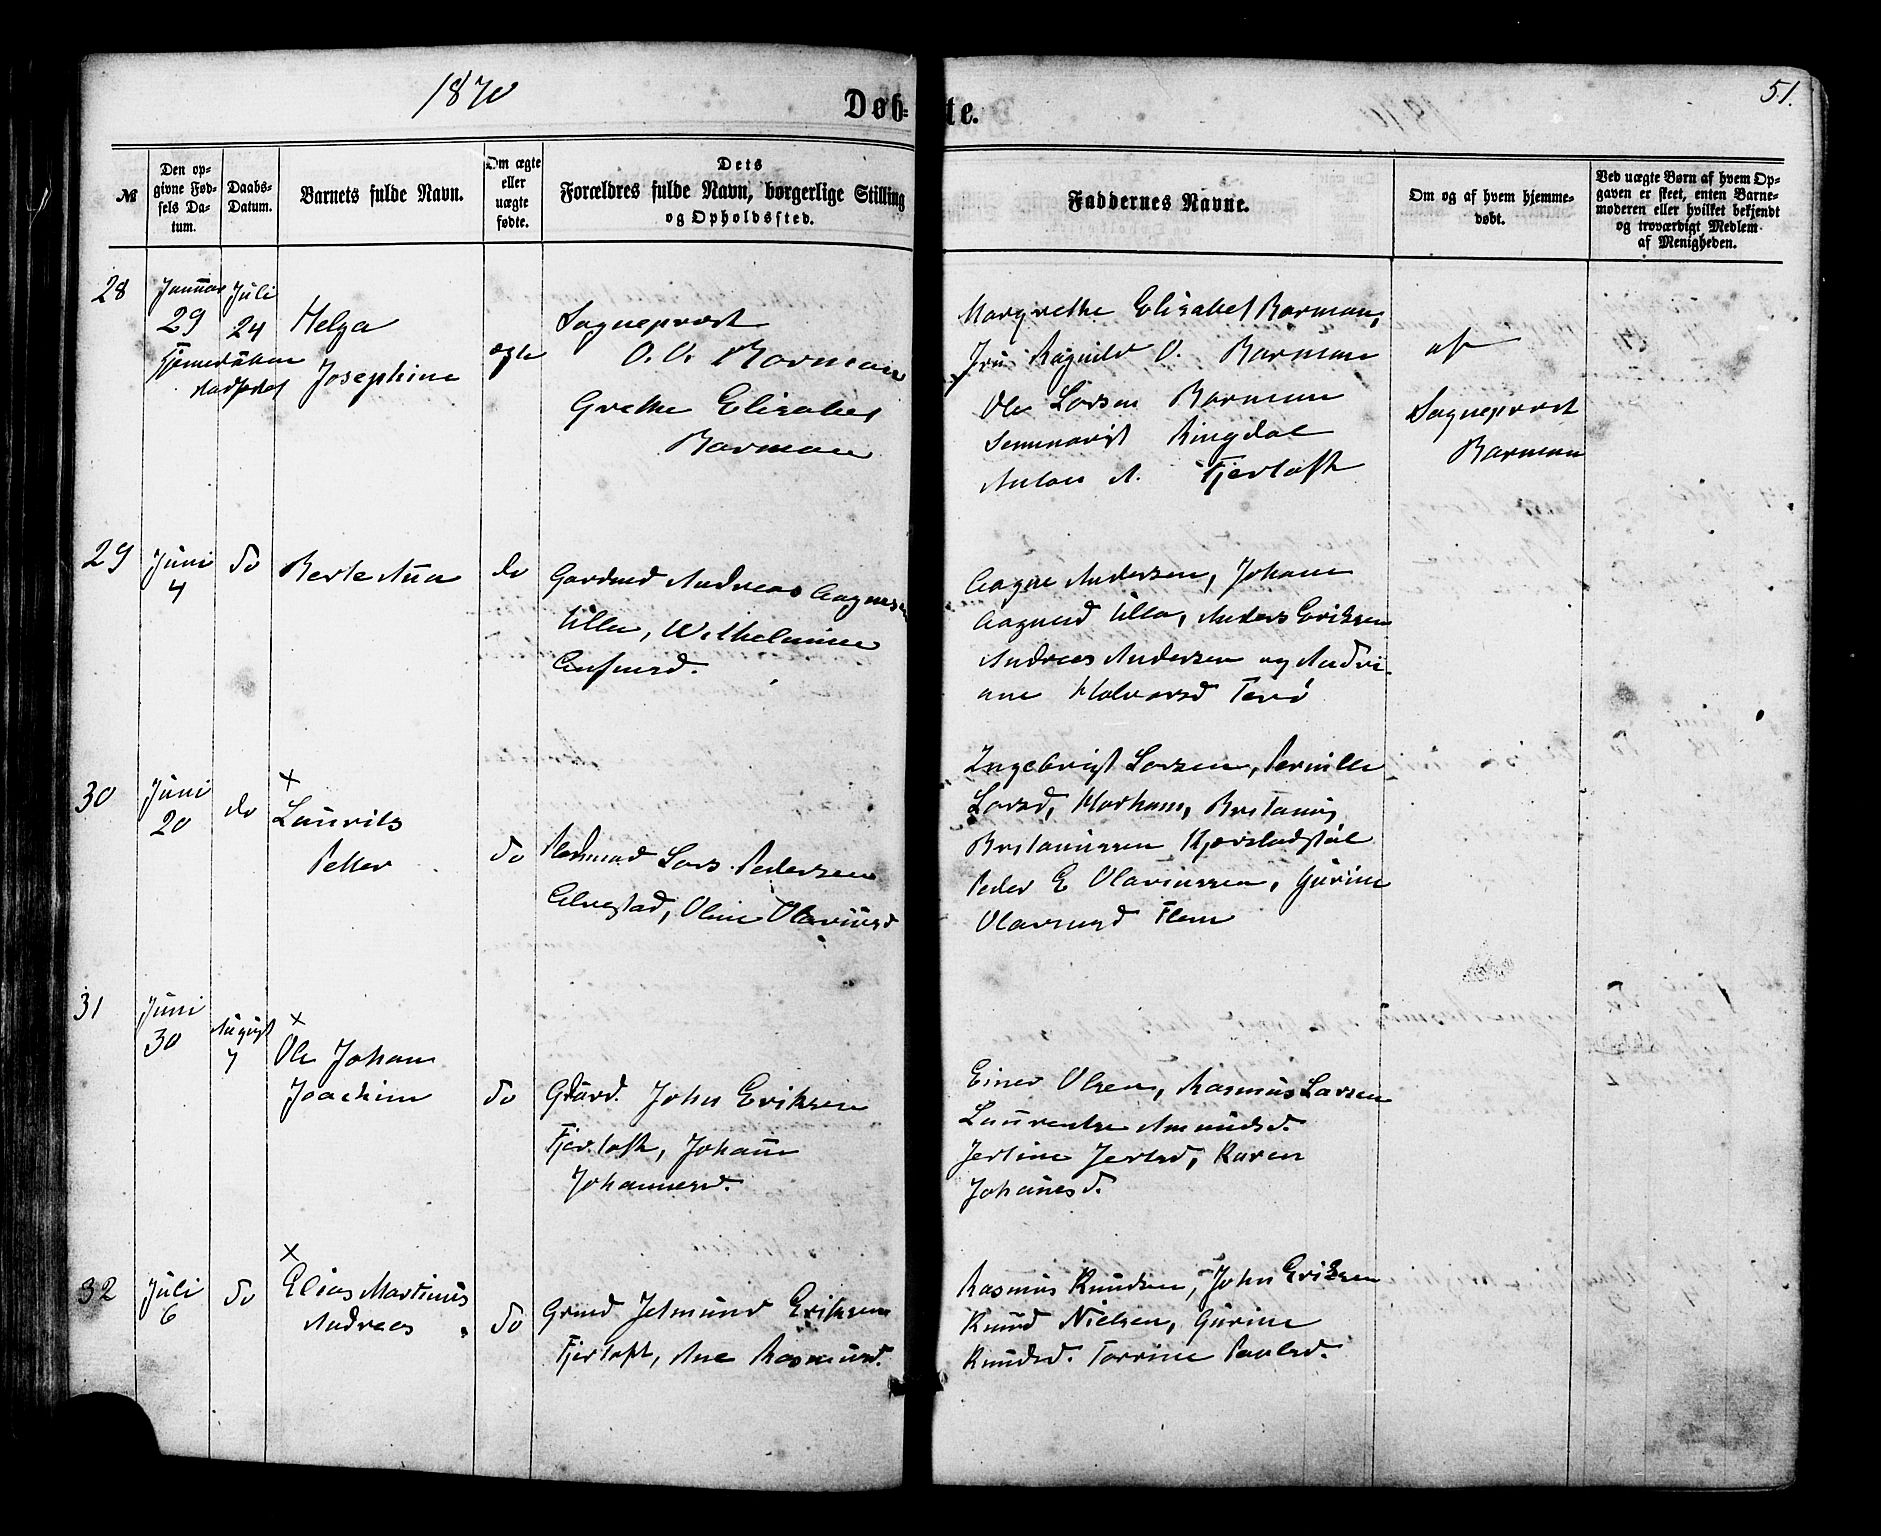 1870
Døb-
te.
51.
№
Den op-
givne Fød-
sels Da-
tum.
Daabs-
Datum.
Barnets fulde Navn.
Om ægte
eller
uægte
fødte.
Dets
Forældres fulde Navn, borgerlige Stilling
og Opholdssted.
Faddernes Navne.
Om og af hvem hjemme-
døbt.
Ved uægte Børn af hvem Op-
gaven er skeet, enten Barne-
moderen eller hvilket bekjendt
og troværdigt Medlem
af Menigheden.
28
Januar
29
Hjemmedåben
stadfæstet
Juli
24
Helga
Josephine
ægte
Sogneprest
O. O. Barman
Grethe Elisabet
Barman
Margrethe Elisabet Barman,
Fru Ragnild O. Barman
Ole Larsen Barman
Seminarist Ringdal
Anton A. Fjertoft
af
Sogneprest
Barman
29
Juni
4
do
Berte Ana
do
Gardmd Andreas Aagnesen
Ulla, Wilhelmine
Aagne Andersen, Johane
Aagnesd Ulla, Anders Eriksen
Andreas Andersen og Andri-
ane Halvorsd Terø
30
Juni
20
do
×
Laurits
Petter
do
Lars Pedersen
Alvestad, Oline Olariusd
Ingebrigt Larsen, Pernille
Larsd, Harham, Britanus
Britanussen Kjerstadstøl
Peder E Olariussen, Gurine
Olariusd Flem
31
Juni
30
August
7
×
Ole Johan
Joachim
do
Gård. John Eriksen
Fjertoft, Johane
Johannesd.
Einer Olsen, Rasmus Larsen
Laurentse Amundsd.
Jertine Jertsd, Karen
Johanesd.
32
Juli
6
do
×
Elias Martinus
Andreas
do
Grmd Jetmund Eriksen
Fjertoft, Ane Rasmusd.
Rasmus Knudsen, John Eriksen
Knud Nielsen, Gurine
Knudsd. Torrine Paulsd.